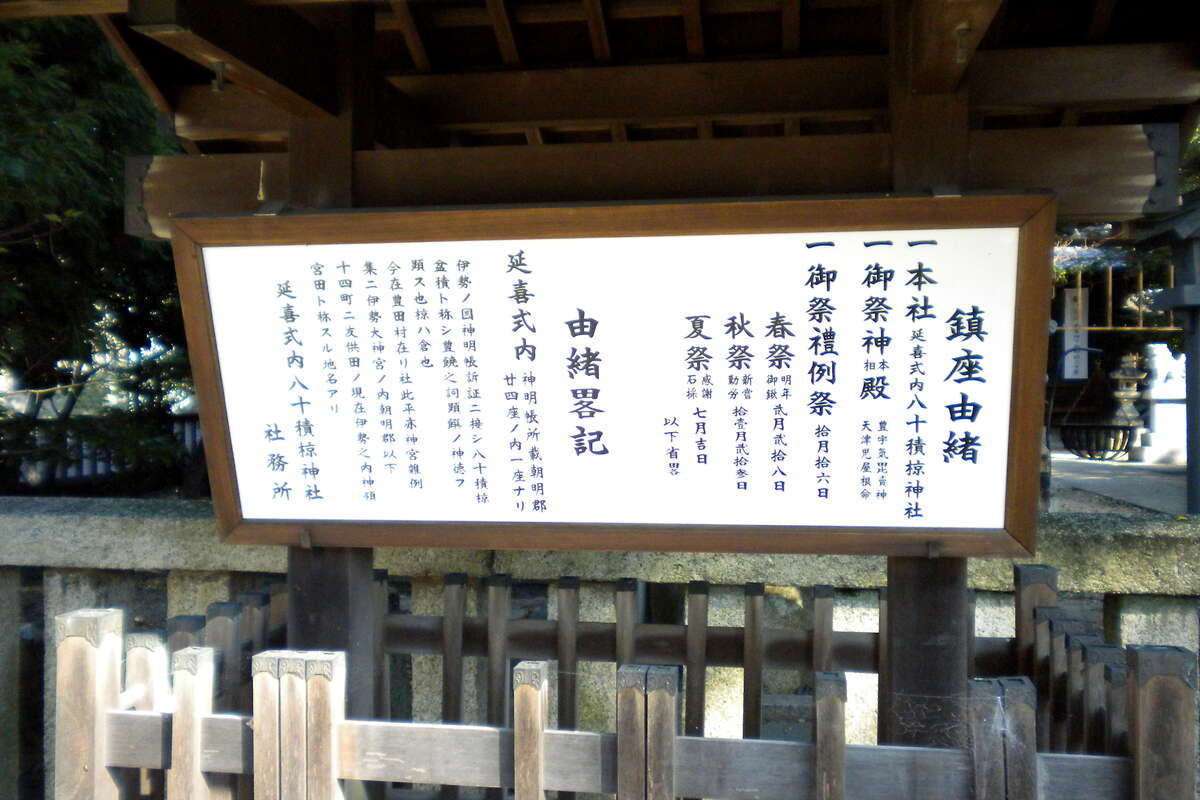 鎮座由緒
一本社 延喜式内八十積椋神社
一御祭神 本相殿 豊宇気毘賣神 天津児屋根命
一御祭禮例祭 拾月拾六日
春祭 明年御鍬 弐月弐拾八日
秋祭 新嘗勤労 拾壹月弐拾参日
夏祭 感謝石採 七月吉日
以下省畧
由緒畧記
延喜式内 神明帳所載朝明郡廿四座ノ内一座ナリ
伊勢ノ国神明帳訴証ニ接シ八十積椋
盆積ト称シ豊饒之詞顕饌ノ神徳ヲ
顕ス也椋ハ倉也
今在豊田村在リ社此平赤神宮雑例
集ニ伊勢大神宮ノ内朝明郡以下
十四町ニ友供田ノ現在伊勢之内神領
宮田ト称スル地名アリ
延喜式内八十積椋神社
社務所